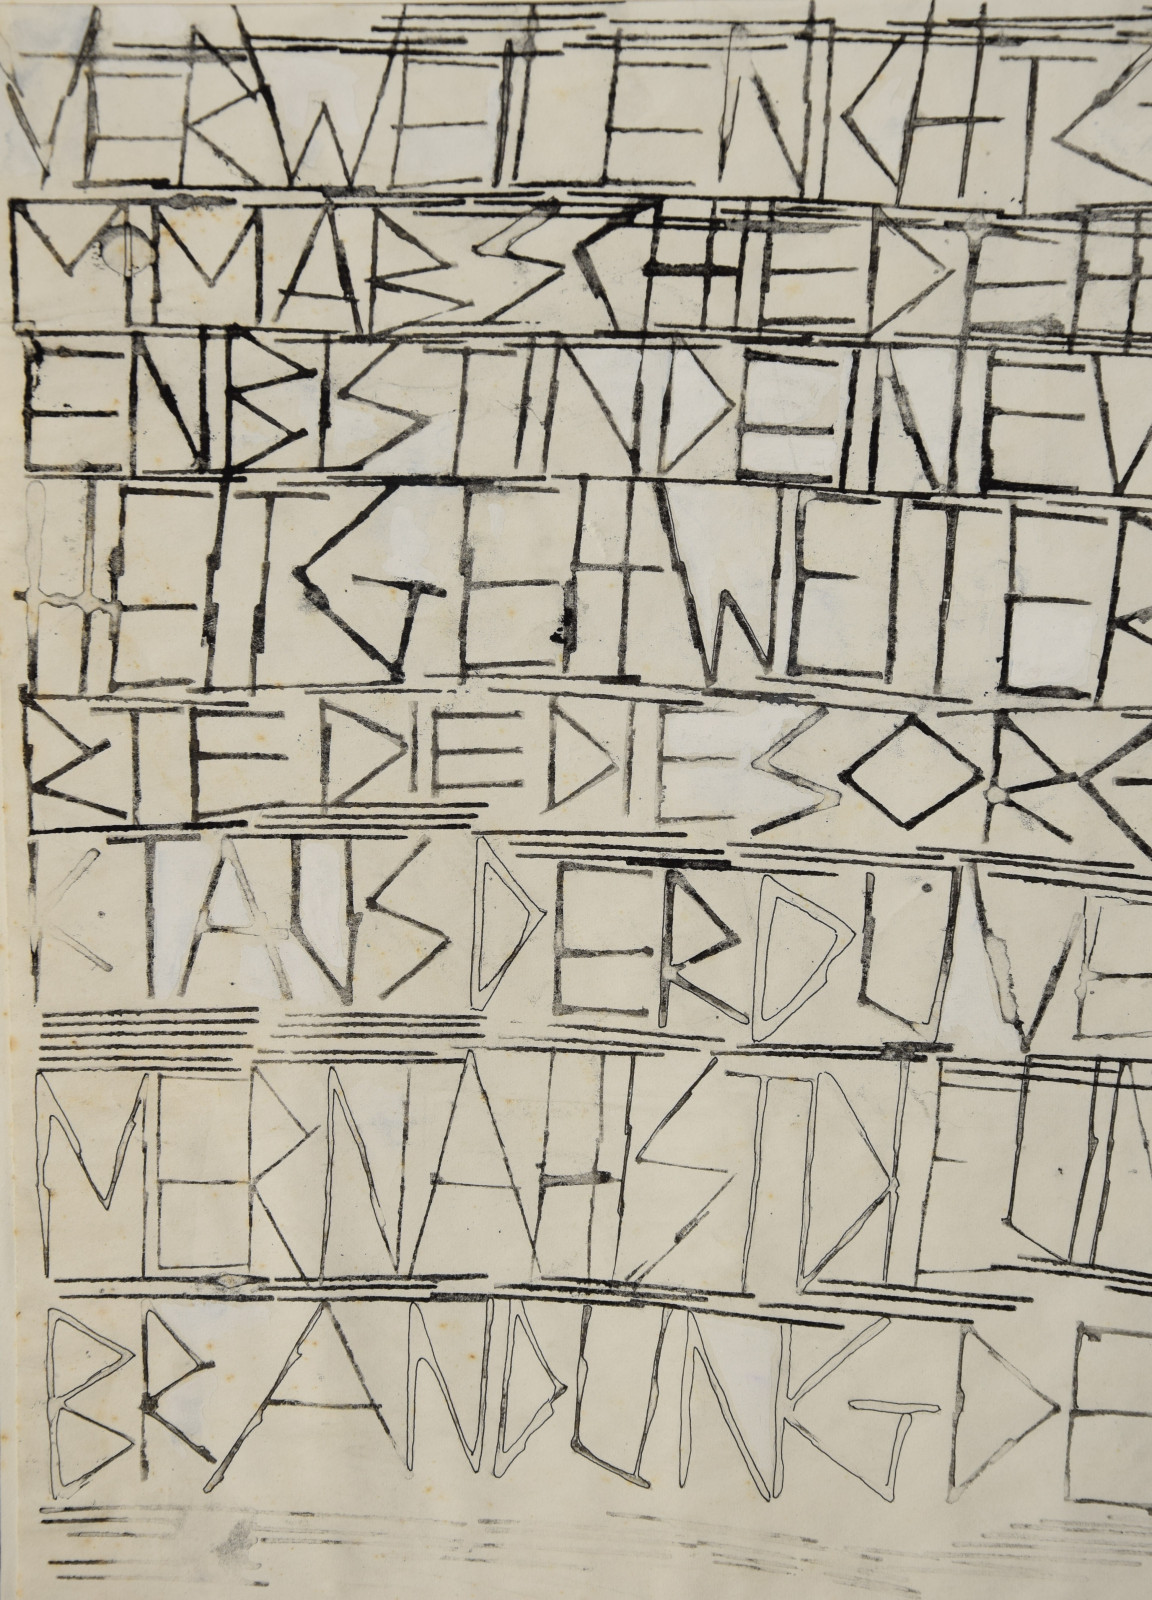 VERWEILE NICHT
KOMM ABSCHIED EH
EN BIST IN DEINE
HEIT GEH WEITER
RTE DIE DIE SORG
KT AUS DER DU
MER NAH IST DIE
BRANDUNG DE